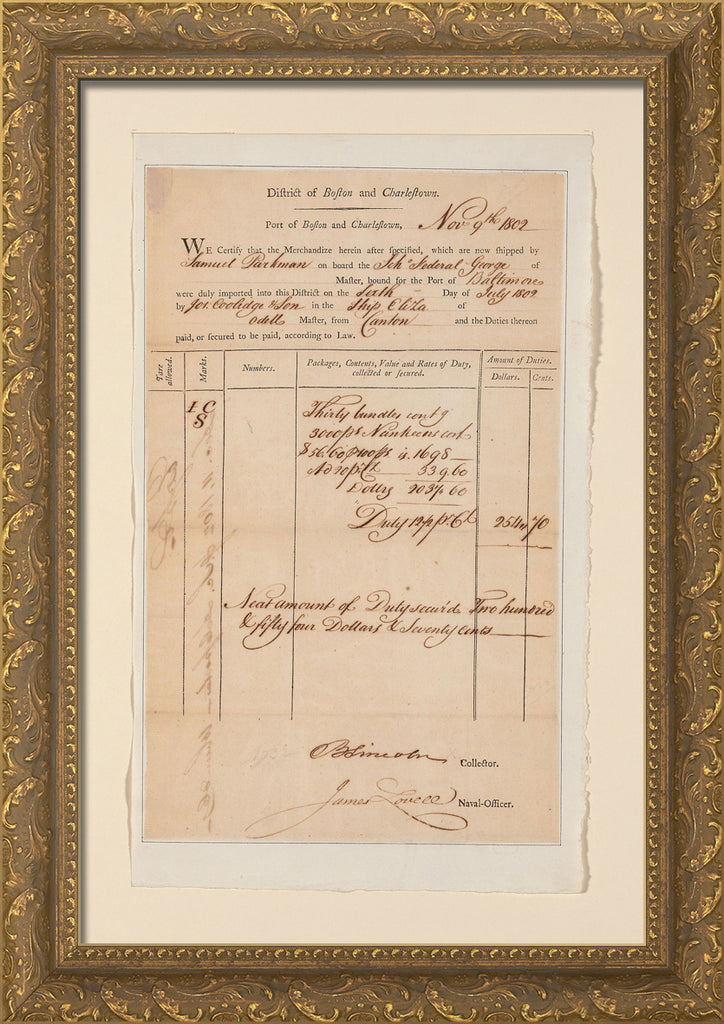 Diſtrict of Boſton and Charleſtown.
Port of Boſton and Charleſtown, Nov 9th 1802
WE Certify that the Merchandize herein after ſpecified, which are now ſhipped by
Samuel Parkman on board the Schr Federal George of
Maſter, bound for the Port of Baltimore
were duly imported into this Diſtrict on the Sixth Day of July 1802
by Jos. Coolidge & Son in the Ship Eliza of
Odell Maſter, from Canton and the Duties thereon
paid, or ſecured to be paid, according to Law.
Tare allowed.
Marks.
Numbers.
Packages, Contents, Value and Rates of Duty, collected or ſecured.
Amount of Duties.
Dollars. Cents.
I C
S
Thirty bundles contg
3000 ps Nankeens cost
$56.60 100 ps is 1698
Ad 20 pr Ct 339.60
Dollrs 2037.60
Duty 12½ pr Ct 254 70
Neat amount of Duty secur'd Two hundred
& fifty four Dollars & Seventy Cents
B Lincoln Collector.
James Lovell Naval-Officer.